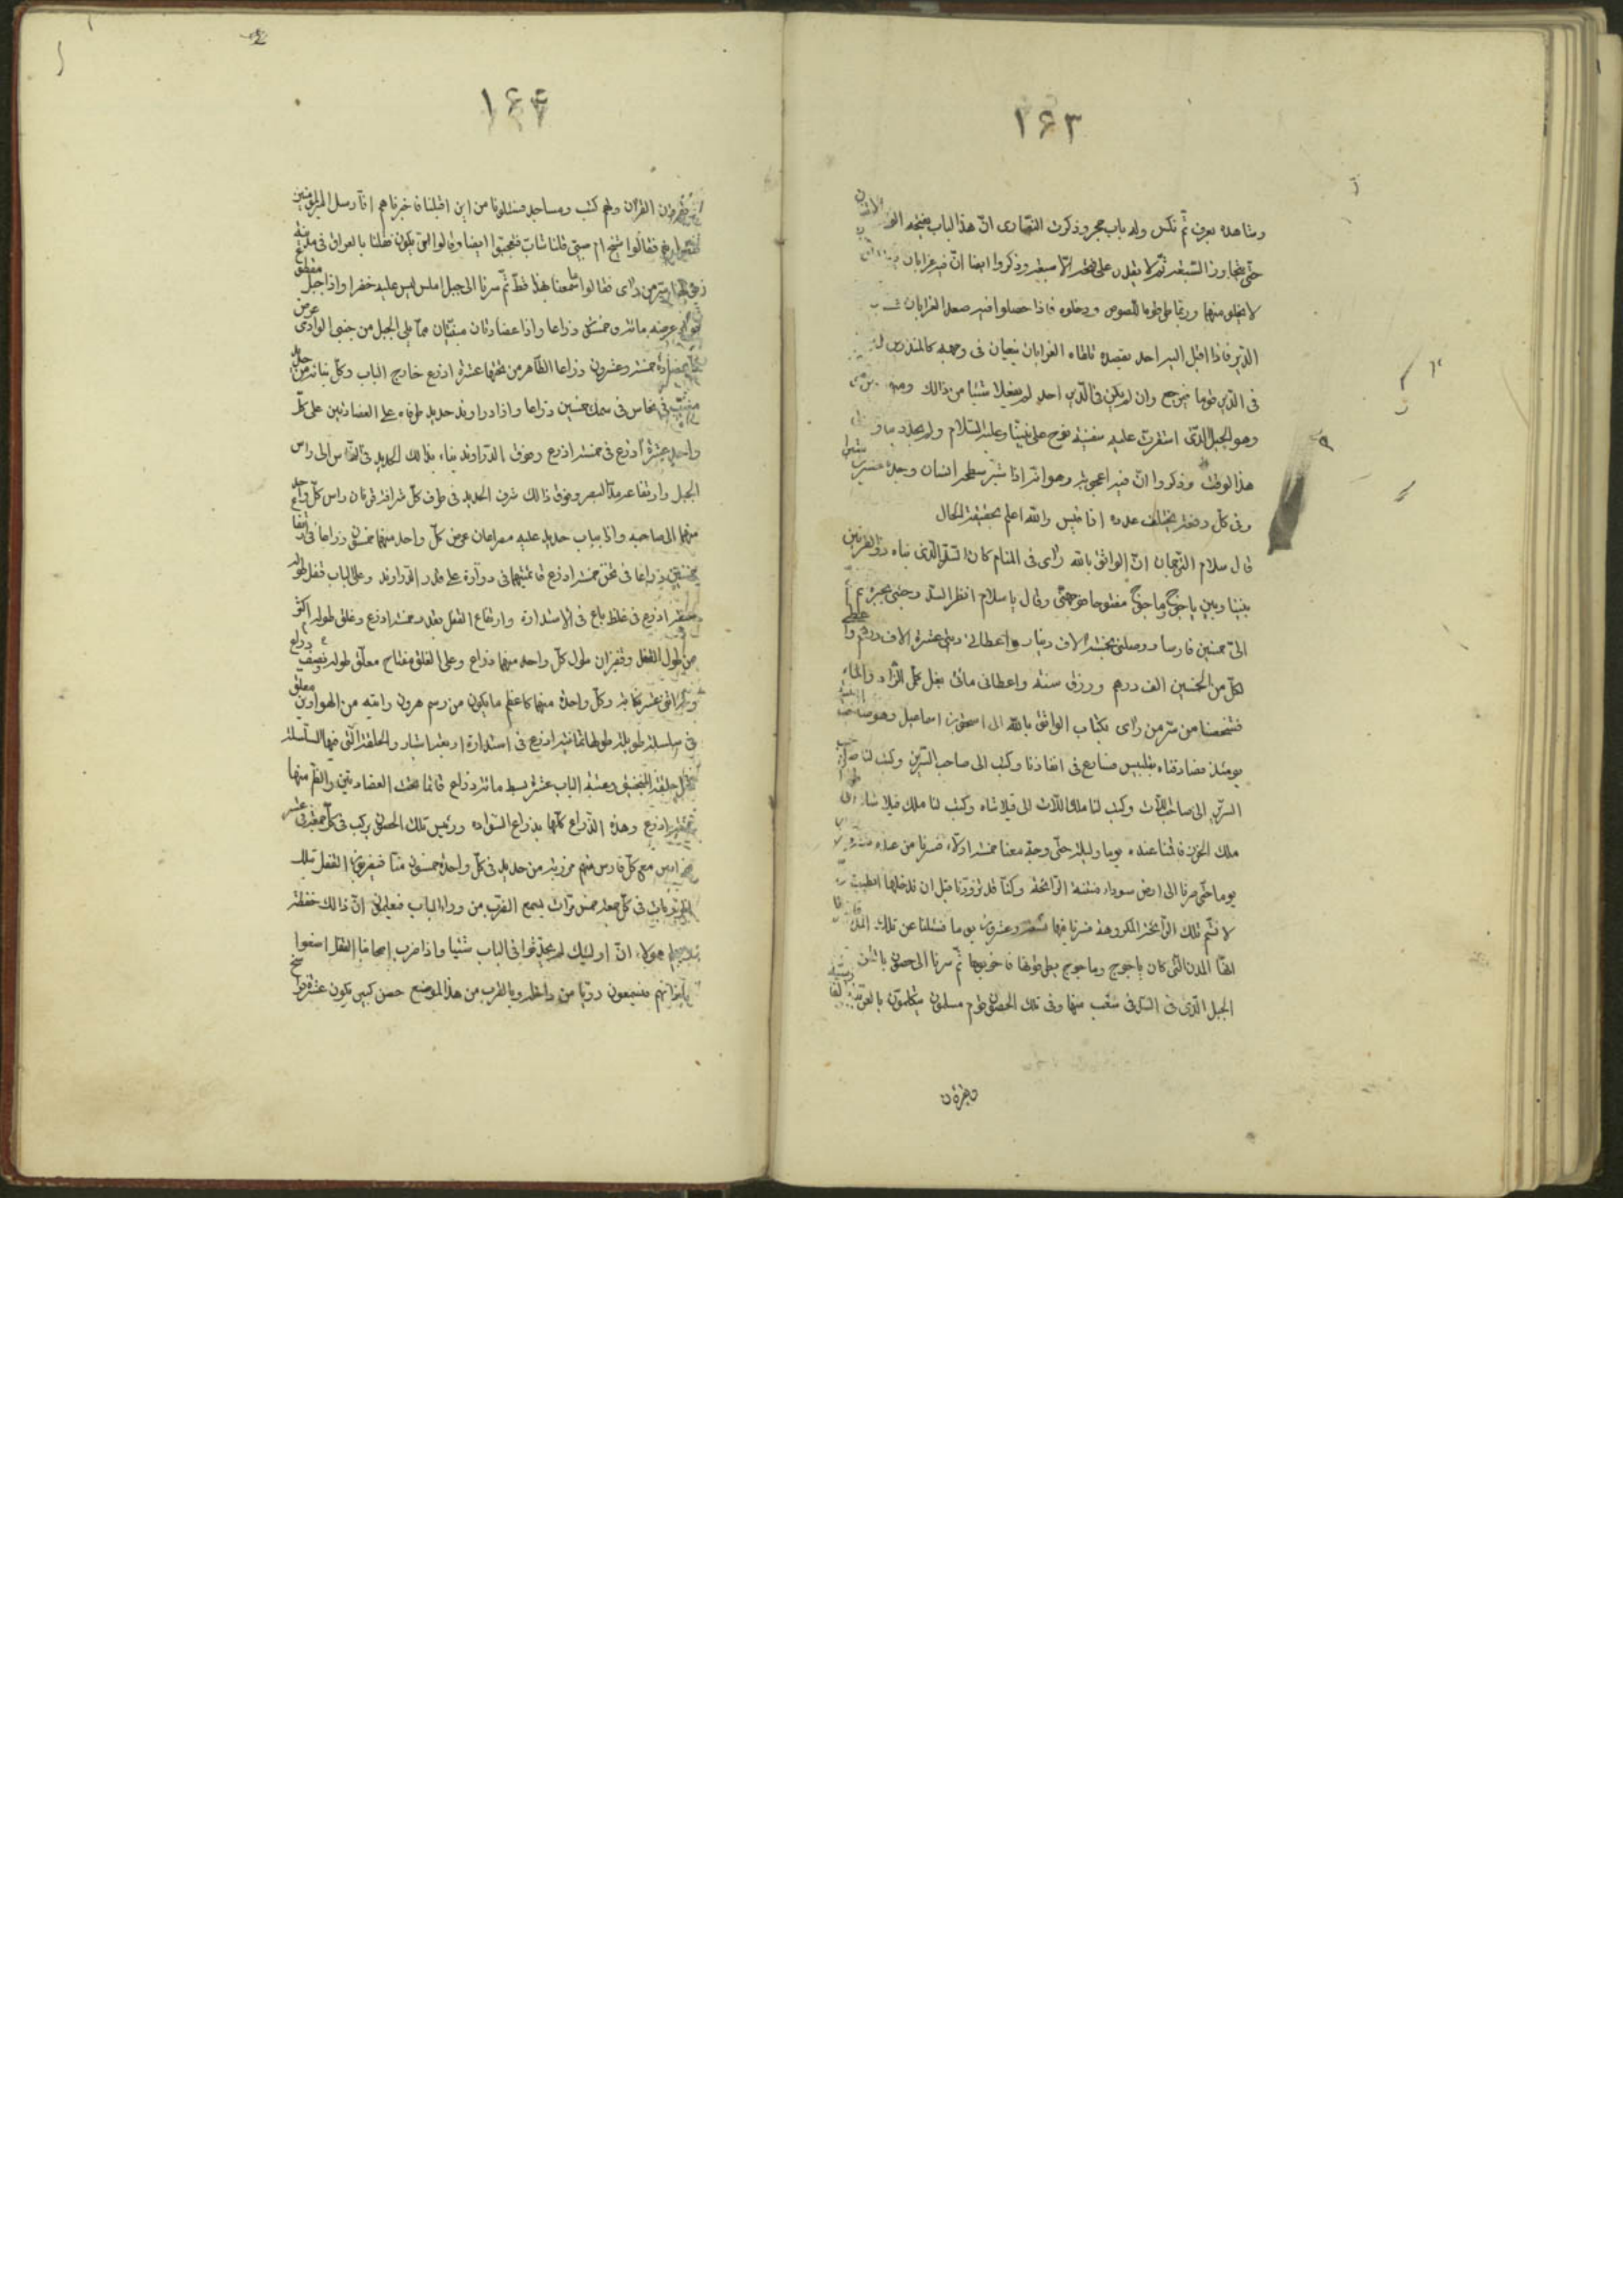 ١۶٣
ومشاهده يعرف ثم نكس وله باب حجر وذكرت النصارى ان هذا الباب يفتحه
حتى يتجاوز السبعة ثم لا يقدر على فتحه الا سبعة وذكروا ايضا ان فيه غرابان
لا يخلو منهما وربما طرقها اللصوص ودخلوه فاذا حصلوا فيه صعد الغرابان
الدير فاذا اقبل اليه احد يقصده تلقاه الغرابان ينعيان فى وجهه كالمنذرين
فى الدير قوما فيرجع وان لم يكن فى الدير احد لم يفعلا شيئا من ذالك
وهو الجبل الذى استقرت عليه سفينة نوح على نبينا وعليه السلام
هذا الوقت وذكروا ان فيه اعجوبة وهو انه اذا شبر سطحه انسان وجده عشرين شبرا
وفى كل دفعة يختلف عدده اذا قيس والله اعلم بحقيقة الحال
قال سلام الترجمان ان الواثق بالله راى فى المنام كان السد الذى بناه ذوالقرنين
بيننا وبين ياجوج وماجوج مفتوحا فوجهنى وقال يا سلام انظر السد وجئنى بخبره ثم
الى خمسين فارسا ووصلنى بخمسة الاف دينار واعطانى ديتى عشرة الاف درهم واعطى
لكل من الخمسين الف درهم ورزق سنة واعطانى مائة بغل تحمل الزاد والماء
فشخصنا من سر من راى بكتاب الواثق بالله الى اسحق بن اسماعيل وهو صاحب
يومئذ فصادفناه بتفليس فسارع فى انفاذنا وكتب الى صاحب السرير وكتب لنا صاحب
السرير الى صاحب اللات وكتب لنا ملك اللات الى قيلاشاه وكتب لنا ملك قيلاشاه الى
ملك الخزر فاقمنا عنده يوما وليلة حتى وجه معنا خمسة ادلاء فسرنا من عنده
يوما حتى صرنا الى ارض سوداء منتنة الرائحة وكنا قد تزودنا قبل ان ندخلها الطيب
لا نشم تلك الرائحة المكروهة فسرنا فيها تسعة وعشرين يوما فسئلنا عن تلك المدن
انها المدن التى كان ياجوج وماجوج يطرقونها فاخربوها ثم سرنا الى حصون بالقرب
الجبل الذى فى السد فى شعب منها وفى تلك الحصون قوم مسلمون يتكلمون بالعربية
ويقرؤن
١۶۴
ويقرؤن القران ولهم كتب ومساجد فسئلونا من اين اقبلنا فاخبرناهم انا رسل امير المؤمنين
فقالوا شيخ ام صبى قلنا شاب فتعجبوا ايضا وقالوا اين يكون فقلنا بالعراق فى مدينة
سر من راى فقالوا ما سمعنا بهذا قط ثم سرنا الى جبل املس ليس عليه خضرا واذا جبل مقطوع
عرضه مائة وخمسون ذراعا واذا عضادتان مبنيتان مما يلى الجبل من جنبى الوادى عرض
عضادة خمسة وعشرون ذراعا الظاهر من تحتها عشرة اذرع خارج الباب وكل بنائه من حديد
مغيب فى نحاس فى سمك خمسين ذراعا واذا دراوند حديد طرفاه على العضادتين على كل
واحد عشرة اذرع فى خمسة اذرع وفوق الدراوند بناء بذالك الحديد فى النحاس الى راس
الجبل وارتفاعه مد البصر وفوق ذالك شرف الحديد فى طرف كل شرافة قرنان راس كل واحد
منهما الى صاحبه واذا بباب حديد عليه مصراعان عرض كل واحد منهما خمسون ذراعا فى ارتفاع
خمسين ذراعا فى ثخن خمسة اذرع قائمتيهما فى دوارة على قدر الدراوند وعلى الباب قفل طوله
سبعة اذرع فى غلظ باع فى الاستدارة وارتفاع القفل بقدر خمسة اذرع وغلق طوله اكثر
من طول القفل وقفيزان طول كل واحد منهما ذراع وعلى الغلق مفتاح معلق طوله ذراع ونصف
وله اثنى عشر دندانة وكل واحدة منها كاعظم ما يكون من دسج هرون رايته من الهواوين معلق
فى سلسلة طويلة طولها ثمانية اذرع فى استدارة اربعة اشبار والحلقة التى فيها السلسلة
مثل حلقة المنجنيق وعتبة الباب عشرة بسط مائة ذراع قائما تحت العضادتين والظاهر منها
خمسة اذرع وهذه الذراع كلها بذراع السواده ورئيس تلك الحصون يركب فى كل جمعة فى عشرة
فوارس مع كل فارس منهم مرزبة من حديد فى كل واحدة خمسون منا فيضربون القفل بتلك
المرزبات فى كل جمعة خمس مرات ليسمع الضرب من وراء الباب فيعلمون ان ذالك حفظة
هؤلاء ان اوليك لم يحدثوا فى الباب شيئا واذا ضرب اصحابنا القفل اصغوا
باذانهم فيسمعون دويا من داخله وبالقرب من هذا الموضع حصن كبير يكون عشرة فراسخ